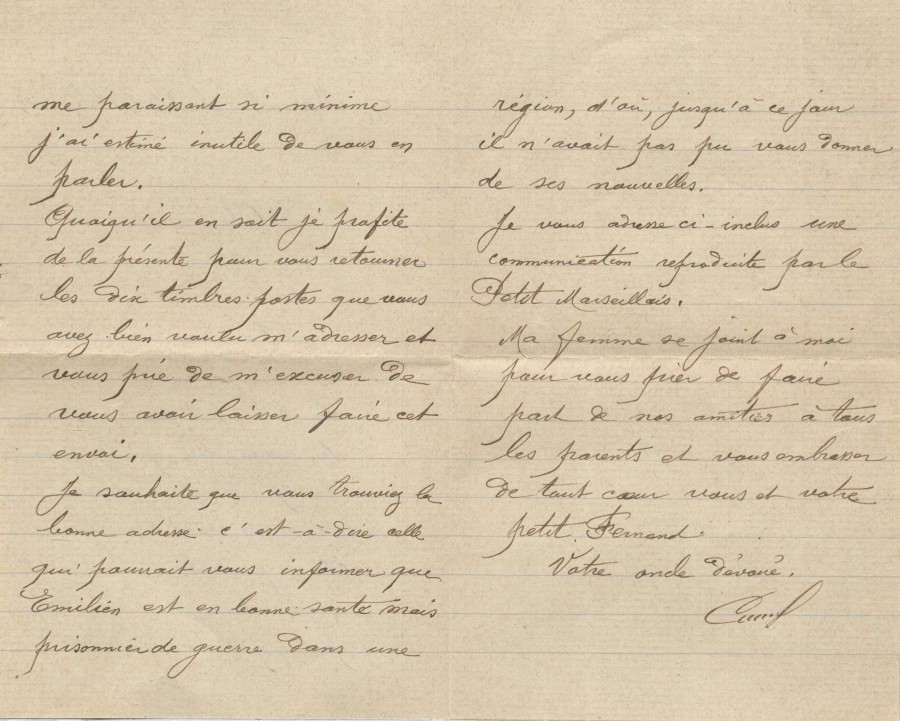 me paraissant si minime
j'ai estimé inutile de vous en
parler.
Quoiqu'il en soit je profite
de la présente pour vous retourner
les dix timbres-postes que vous
avez bien voulu m'adresser et
vous prie de m'excuser de
vous avoir laisser faire cet
envoi.
Je souhaite que vous trouviez la
bonne adresse c'est-à-dire celle
qui pourrait vous informer que
Emilien est en bonne santé mais
prisonnier de guerre dans une
région, d'où, jusqu'à ce jour
il n'avait pas pu vous donner
de ses nouvelles.
Je vous adresse ci-inclus une
communication reproduite par le
Petit Marseillais.
Ma femme se joint à moi
pour vous prier de faire
part de nos amitiés à tous
les parents et vous embrasser
de tout cœur vous et votre
petit Fernand.
Votre oncle dévoué.